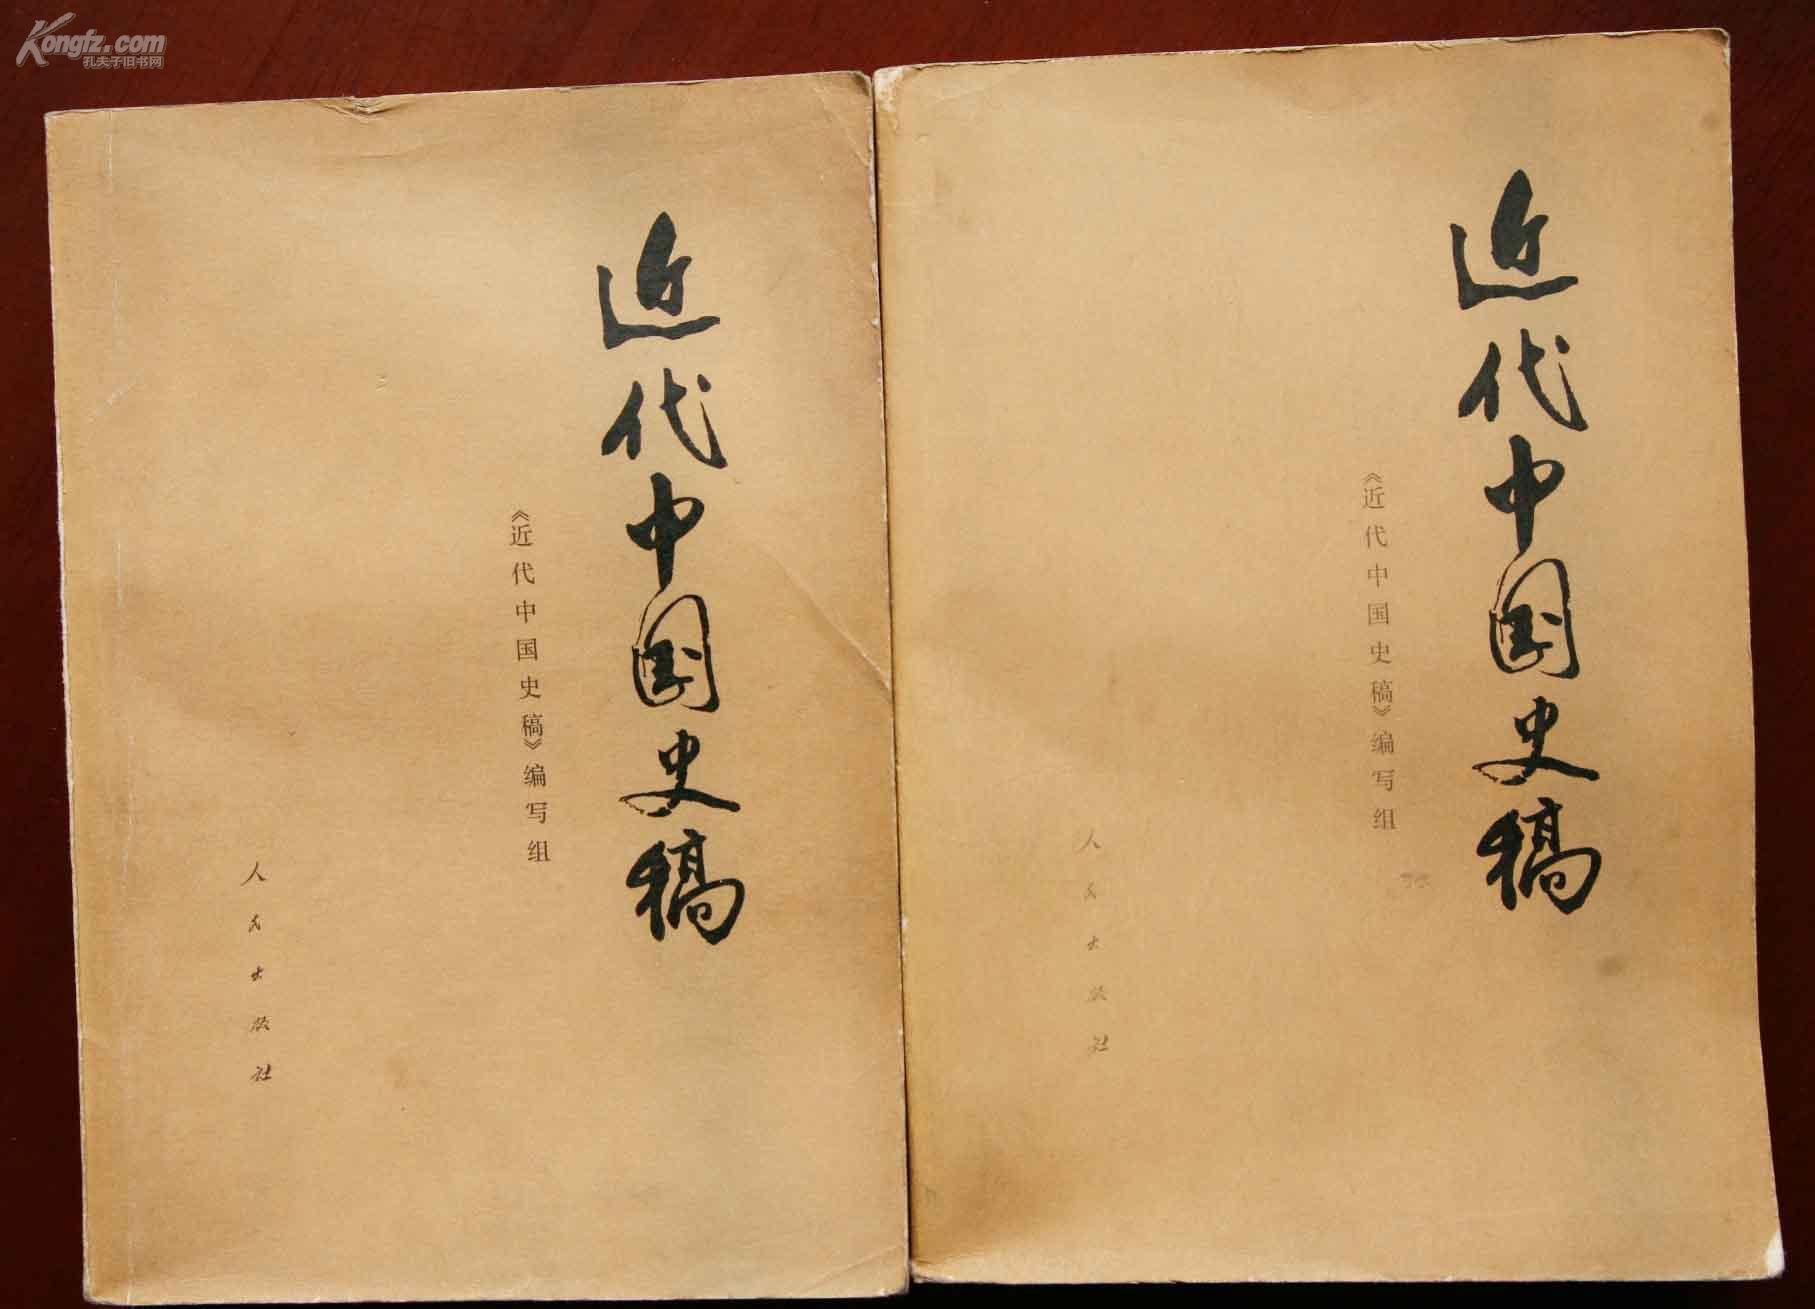 Kongfz.com
孔夫子旧书网
近代中国史稿
《近代中国史稿》编写组
人民出版社
近代中国史稿
《近代中国史稿》编写组
人民出版社